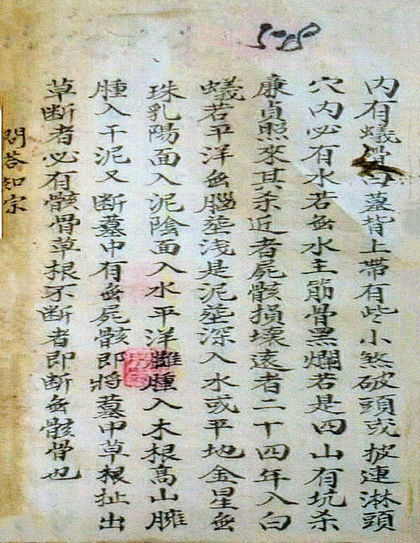 内有蟻白墓背上帶有些小煞破頭或披連淋頭
穴內必有水若無水主筋骨黑爛若是四山有坑杀
廉貞照來其杀近者屍骸損壞遠者二十四年入白
蟻若平洋無腦葬浅是泥葬深入水或平地金星無
珠乳陽面入泥陰面入水平洋雖腫入木根高山臃
腫入干泥又断墓中有無屍骸即將墓中草根扯出
草断者必有骸骨草根不断者即断無骸骨也
問答知宗